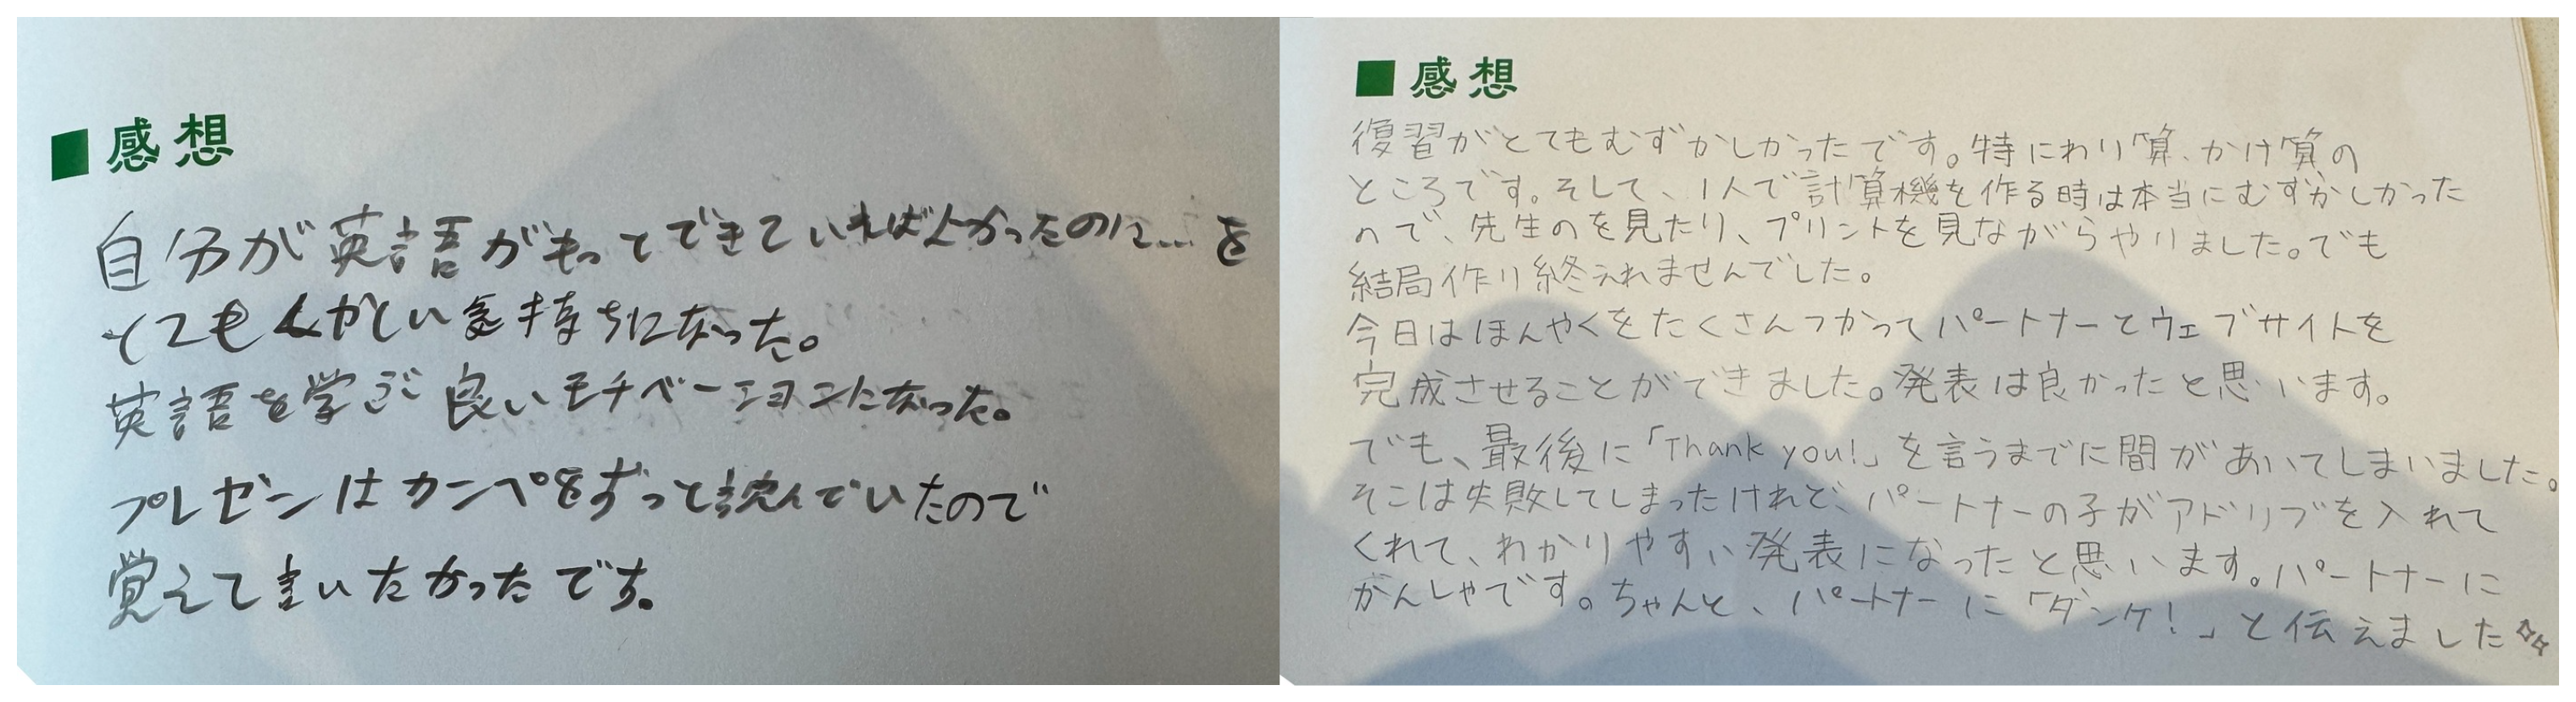 ■感想
自分が英語がもっとできていればよかったのに…を
とてもくやしい気持ちになった。
英語を学ぶ良いモチベーションになった。
プレゼンはカンペをずっと読んでいたので
覚えて言いたかったです。
■感想
復習がとてもむずかしかったです。特にわり算、かけ算の
ところです。そして、1人で計算機を作る時は本当にむずかしかった
ので、先生のを見たり、プリントを見ながらやりました。でも
結局作り終えれませんでした。
今日はほんやくをたくさんつかってパートナーとウェブサイトを
完成させることができました。発表は良かったと思います。
でも、最後に「Thank you!」を言うまでに間があいてしまいました。
そこは失敗してしまったけれど、パートナーの子がアドリブを入れて
くれて、わかりやすい発表になったと思います。パートナーに
かんしゃです。ちゃんと、パートナーに「ダンケ!」と伝えました☆☆